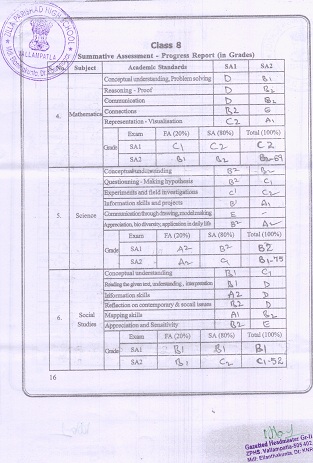 ZILLA PARSHAD HIGH SCHOOL
VALLAMPATLA
Class 8
Summative Assessment - Progress Report (in Grades)
No. Subject Academic Standards SA1 SA2
4. Mathematics
Conceptual understanding, Problem solving D B1
Reasoning - Proof D B2
Communication D B2
Connections B2 E
Representation - Visualisation C2 A1
Grade Exam FA (20%) SA (80%) Total (100%)
SA1 C1 C2 C2
SA2 B1 B2 B2-69
5. Science
Conceptual understanding B2
Questioning - Making hypothesis B2 C1
Experiments and field investigations C1 C2
Information skills and projects B1 A1
Communication through drawing, model making E -
Appreciation, bio diversity, application in daily life B2
Grade Exam FA (20%) SA (80%) Total (100%)
SA1 A2 B2 B2
SA2 A2 C1 B1-75
6. Social Studies
Conceptual understanding B1 C1
Reading the given text, understanding, interpretation B1 D
Information skills A2 D
Reflection on contemporary & socail issues B2 D
Mapping skills A1 B2
Appreciation and Sensitivity B2 E
Grade Exam FA (20%) SA (80%) Total (100%)
SA1 B1 B1 B1
SA2 B1 C2 C1-52
16
Gazetted Headmaster Gr-II
ZPHS. Vallampatla-505 402
Mdl: Ellanthakunta, Dt: KNR